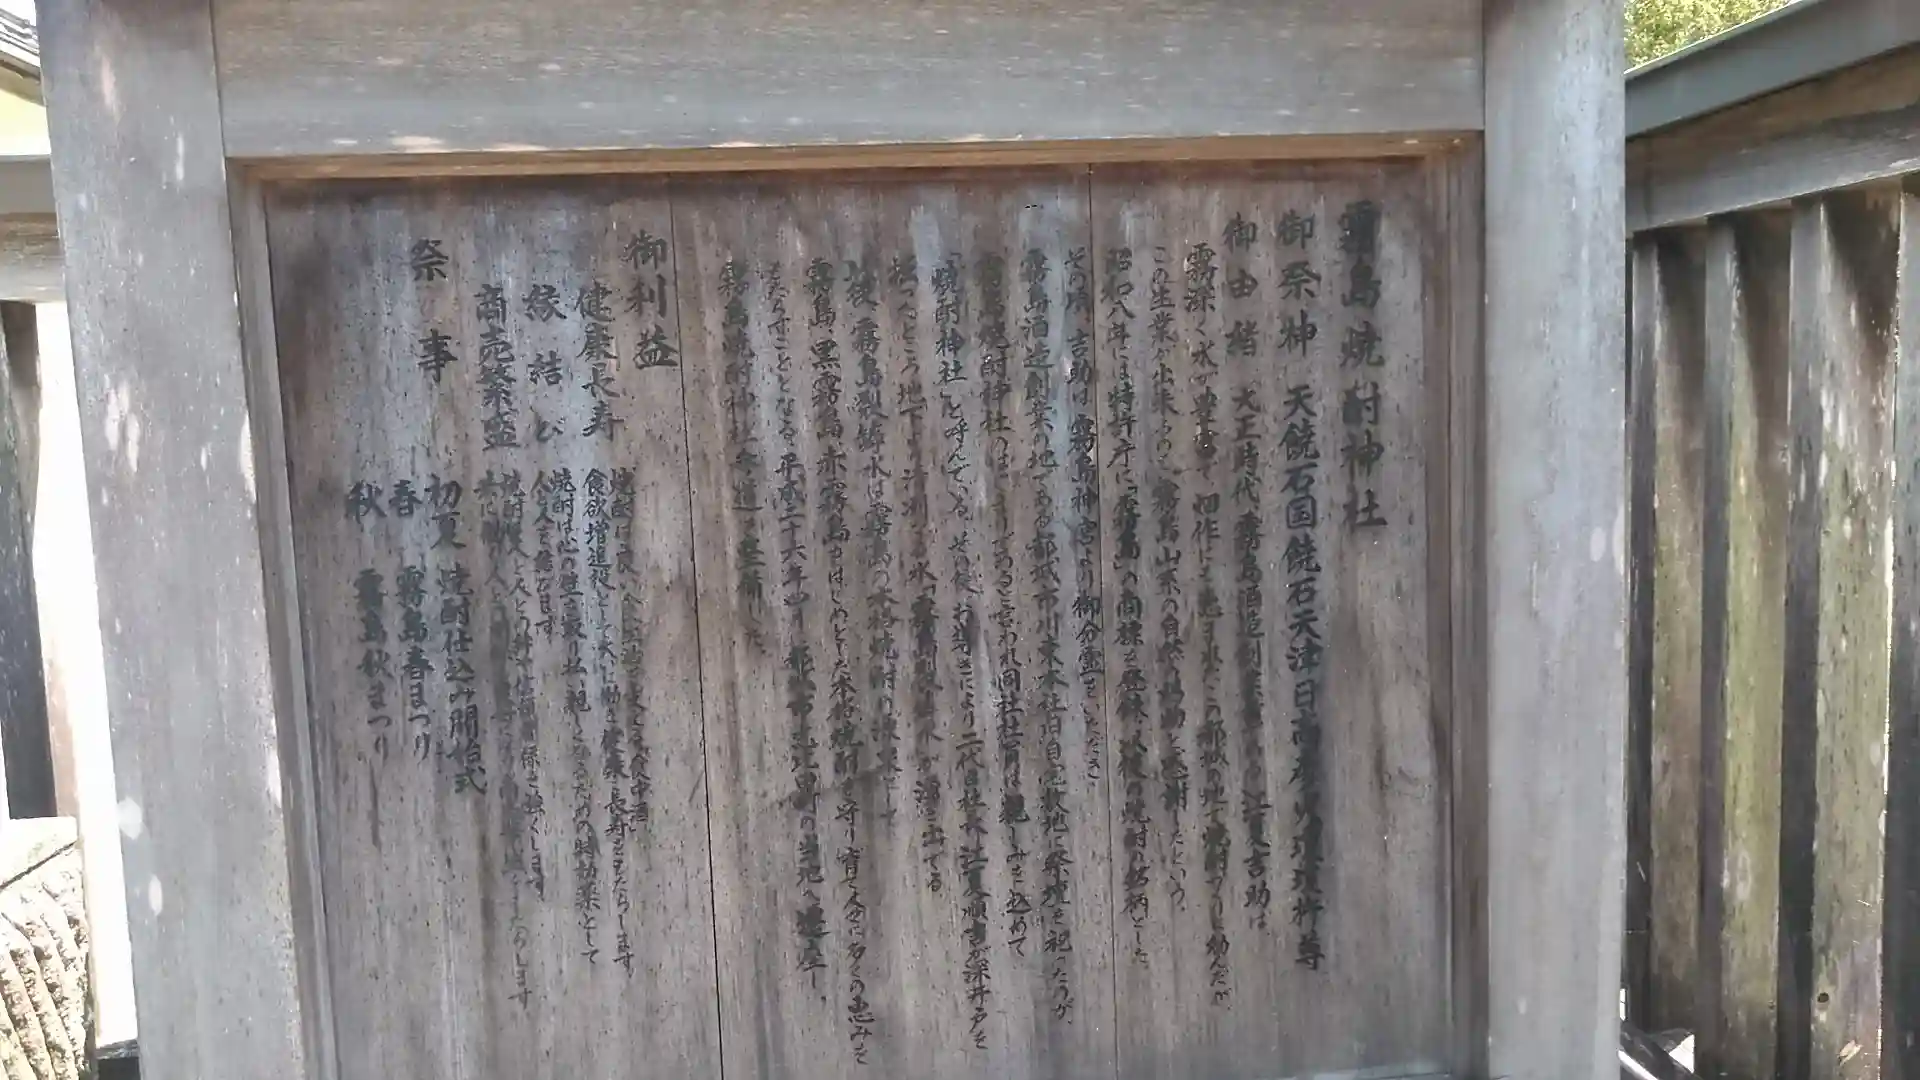 霧島焼酎神社
御祭神 天饒石国饒石天津日高彦火瓊瓊杵尊
御由緒 大正時代、霧島酒造創業者の江夏吉助は、
霧深く水が豊富で、畑作にも恵まれたこの都城の地で焼酎づくりに励んだが、
この生業が出来るのも、霧島山系の自然の賜物と感謝したという。
昭和八年には特許庁に「霧島」の商標を登録、以後の焼酎の銘柄とした。
その頃、吉助は霧島神宮より御分霊をいただき、
霧島酒造創業の地である都城市川東本社旧自宅敷地に祭壇を祀ったのが、
霧島焼酎神社のはじまりであると言われ、同社社員は親しみを込めて
「焼酎神社」と呼んでいる。その後、お導きにより二代目社長江夏順吉が深井戸を
掘ったところ地下より清冽な水「霧島裂罅水」が湧き出でる。
以後、霧島裂罅水は霧島の本格焼酎の源泉として
霧島、黒霧島、赤霧島をはじめとした本格焼酎を守り育て人々に多くの恵みを
もたらすこととなる。平成二十六年四月、都城市志比田町の当地へ遷座し、
霧島焼酎神社を造立整備した。
御利益
健康長寿 焼酎は良い食生活を支える食中酒。
食欲増進役として大いに働き、健康・長寿をもたらします。
縁結び 焼酎は心の壁を取り払い、親しくなるための特効薬として
人と人を結びます。
商売繁盛 焼酎は人と人とのよい信頼関係を築くします。
祭事
初夏 焼酎仕込み開始式
春 霧島春まつり
秋 霧島秋まつり